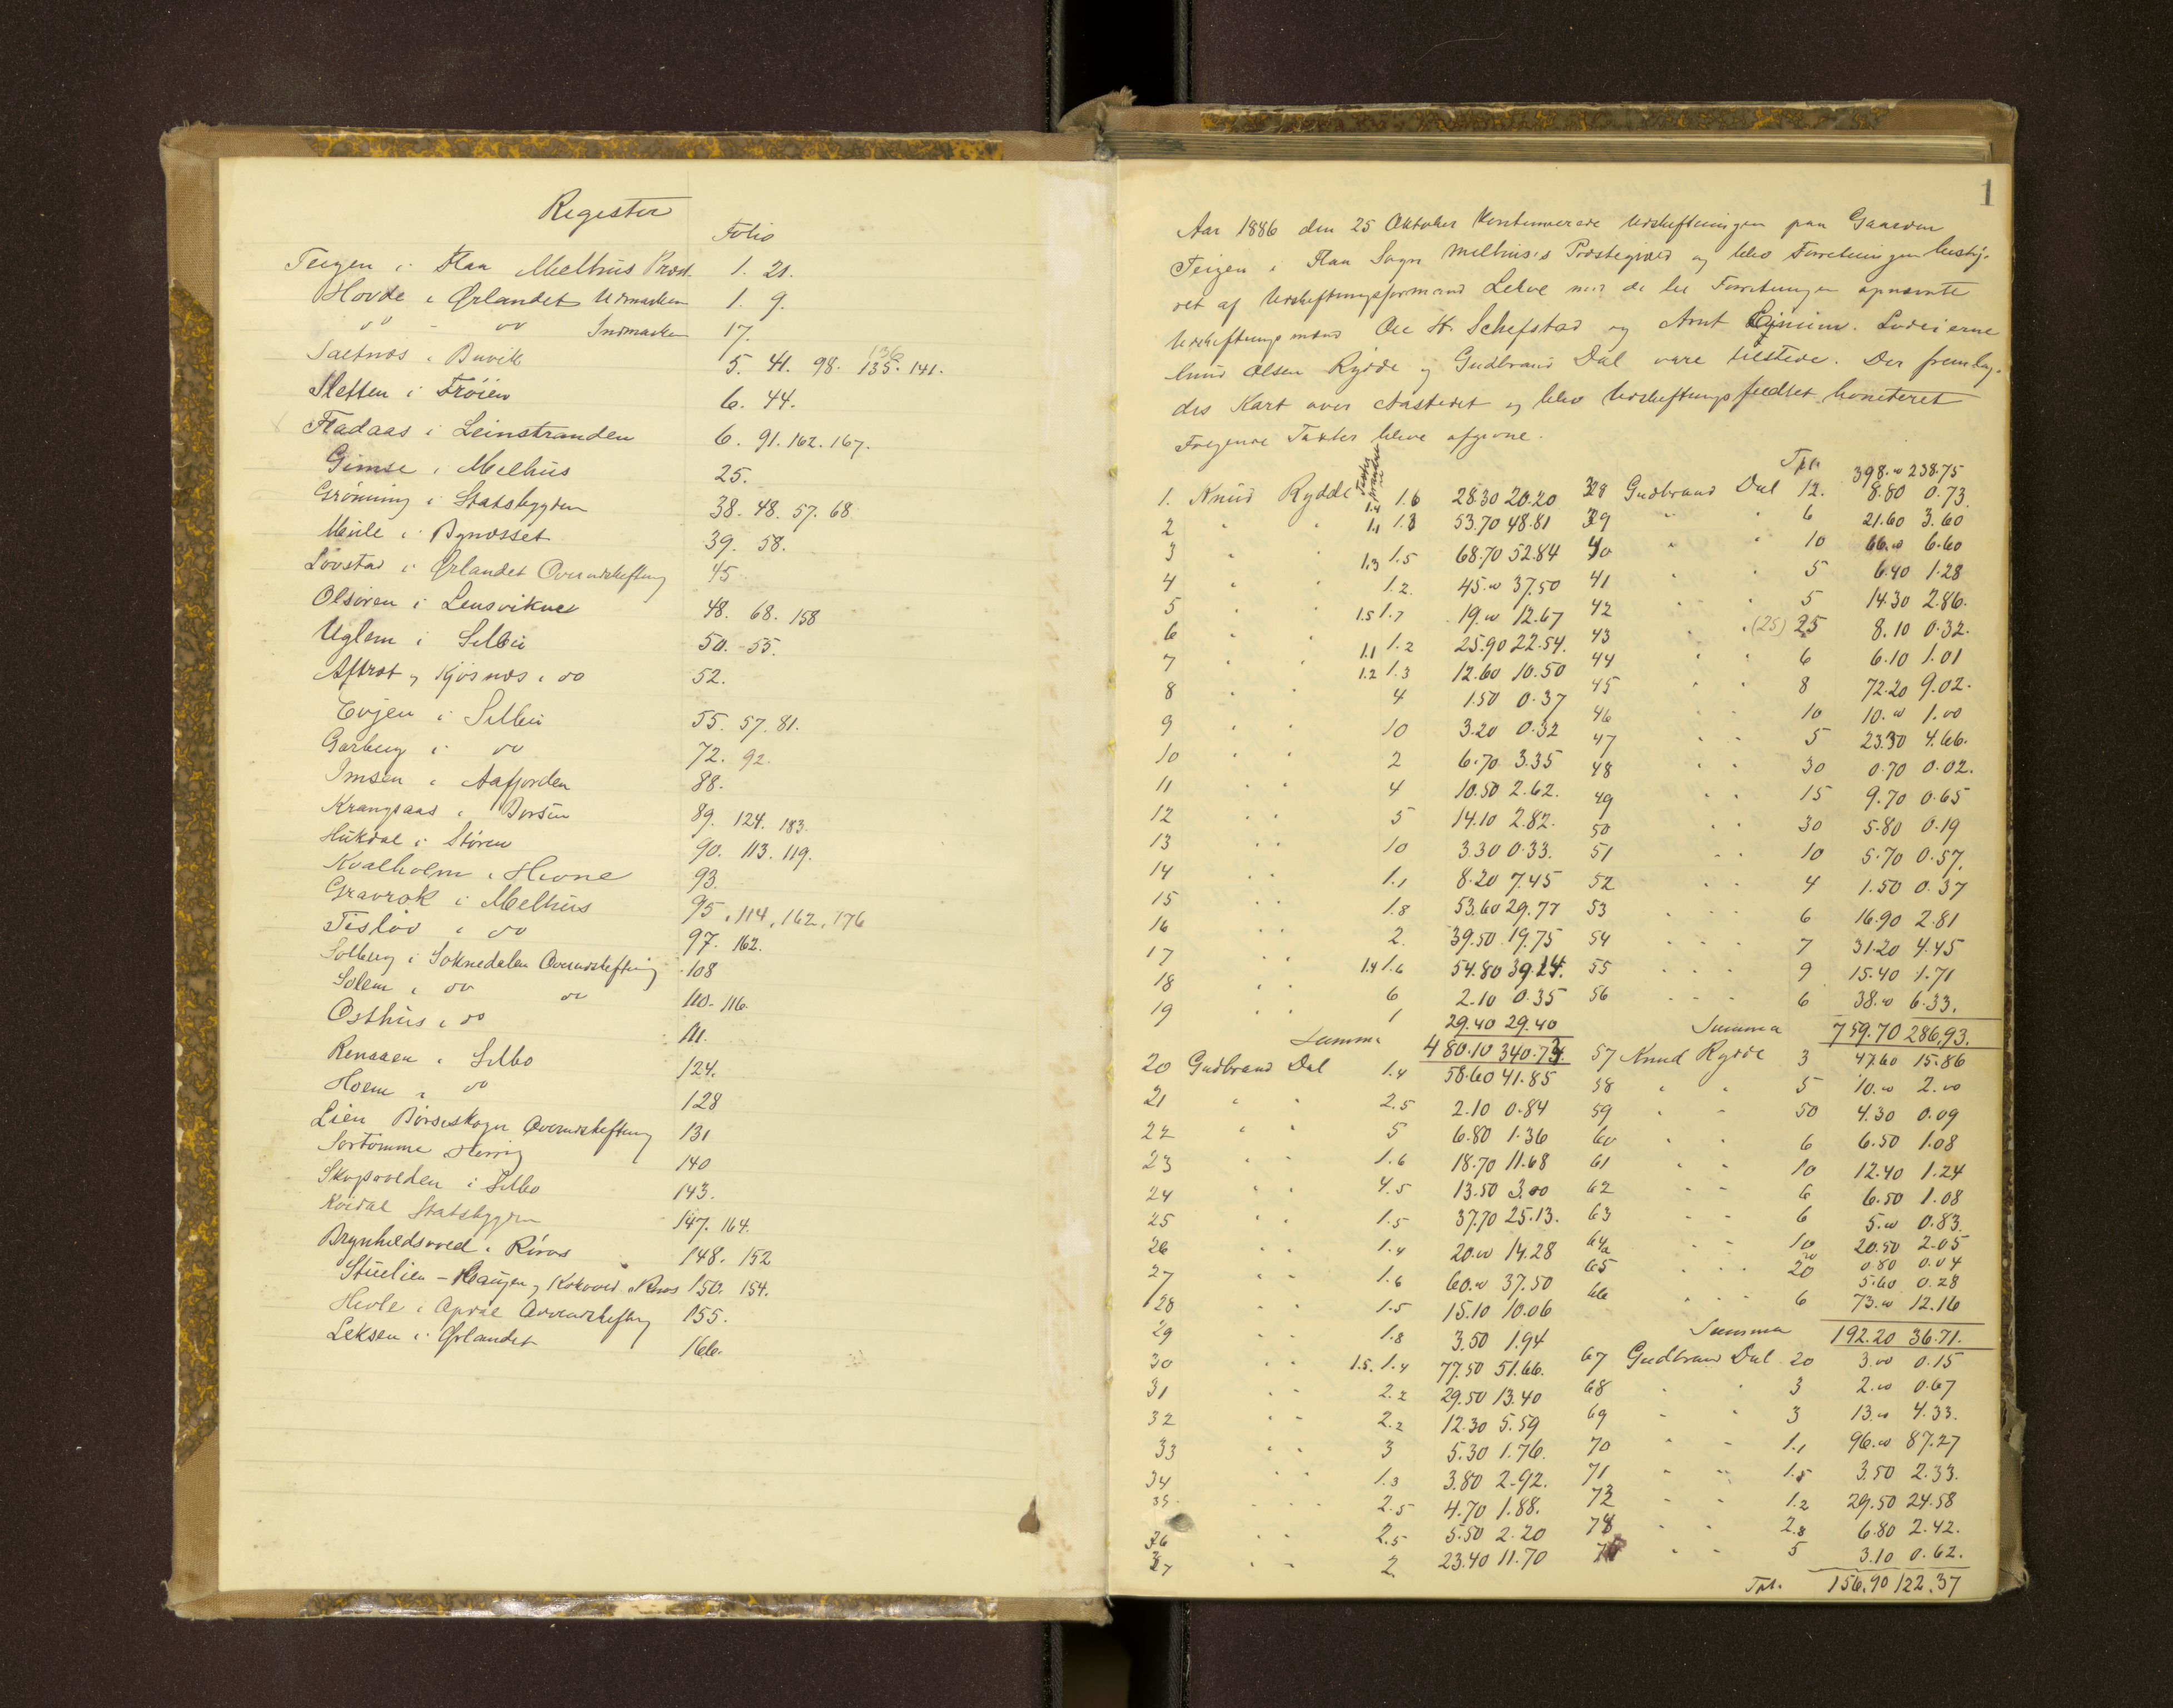 Register
Folio
Teigen i Flaa Melhus Præst. 1. 21.
Hovde i Ørlandet Udmarken 1. 9.
do - do Indmarken 17.
Saltnæs i Buvik 5. 41. 98. 135. 136 141.
Sletten i Frøien 6. 44.
Fladaas i Leinstranden 6. 91. 162. 167.
Gimse i Melhus 25.
Grønning i Statsbygden 38. 48. 57. 68
Mule i Bynæsset 39. 58.
Lovstad i Ørlandet Overudskiftning 45
Olsøren i Lensviken 48. 68. 158
Uglem i Selbu 50. 55.
Aftret og Kjøsnæs i do 52.
Evjen i Selbu 55. 57. 81.
Garberg i do 72. 92.
Imsen i Aafjorden 88.
Krangsaas i Børsen 89. 124. 183.
Hukdal i Støren 90. 113. 119.
Kvalholm i Hevne 93.
Gravrok i Melhus 95, 114, 162, 176
Tisløv i do 97. 162.
Solberg i Soknedalen Overudskiftning 108
Solem i do do 110. 116.
Osthus i do 111.
Renaaen i Selbo 124.
Hoem i do 128
Lien Børseskogn Overudskiftning 131
Sortømme 140
i Selbo 143.
Statsbygden 147. 164.
Brynhildsvold i Røros 148. 152
Stuelien - Haugen og Kokvold i Røros 150. 154.
Hevle i Opdal Overudskiftning 155.
Leksen i Ørlandet 166.
1
Aar 1886 den 25 Oktober kontinuerede Udskiftningen paa Gaarden
Teigen i Flaa Sogn Melhus's Præstegjæld og blev Forretningen besty-
ret af Udskiftningsformand Lehve med de til Forretningen opnævnte
Udskiftningsmænd Ole H. Schefstad og Arnt Lodseierne
Knud Olsen Rydde og Gudbrand Dal vare tilstede. Der fremlag-
des Kart over Aastedet og blev Udskiftningsfeltet boniteret
Følgende Taxter bleve afgivne.
Tpt. 398.00 238.75
1. Knud Rydde 1.4 1.6 28.30 20.20 38 Gudbrand Dal 12. 8.80 0.73
2 " " 1.1 1.3 53.70 48.81 39 " " 6 21.60 3.60
3 " " 1.3 1.5 68.70 52.84 40 " " 10 66.00 6.60
4 " " 1.2. 45.00 37.50 41 " " 5 6.40 1.28
5 " " 1.5 1.7 19.00 12.67 42 " " 5 14.30 2.86.
6 " " 1.1 1.2 25.90 22.54. 43 " " (25) 25 8.10 0.32.
7 " " 1.2 1.3 12.60 10.50 44 " " 6 6.10 1.01
8 " " 4 1.50 0.37 45 " " 8 72.20 9.02.
9 " " 10 3.20 0.32 46 " " 10 10.00 1.00
10 " " 2 6.70 3.35 47 " " 5 23.30 4.66.
11 " " 4 10.50 2.62. 48 " " 30 0.70 0.02.
12 " " 5 14.10 2.82. 49 " " 15 9.70 0.65
13 " " 10 3.30 0.33. 50 " " 30 5.80 0.19
14 " " 1.1 8.20 7.45 51 " " 10 5.70 0.57.
15 " " 1.8 53.60 29.77 52 " " 4 1.50 0.37
16 " " 2. 39.50 19.75 53 " " 6 16.90 2.81
17 " " 1.4 1.6 54.80 39.14. 54 " " 7 31.20 4.45
18 " " 6 2.10 0.35 55 " " 9 15.40 1.71
19 " " 1 29.40 29.40 56 " " 6 38.00 6.33.
Summa 480.10 340.73. Summa 759.70 286.93.
20 Gudbrand Dal 1.4 58.60 41.85 57 Knud Rydde 3 47.60 15.86
21 " " 2.5 2.10 0.84 58 " " 5 10.00 2.00
22 " " 5 6.80 1.36 59 " " 50 4.30 0.09
23 " " 1.6 18.70 11.68 60 " " 6 6.50 1.08
24 " " 4.5 13.50 3.00 61 " " 10 12.40 1.24
25 " " 1.5 37.70 25.13. 62 " " 6 6.50 1.08
26 " " 1.4 20.00 14.28 63 " " 6 5.00 0.83.
27 " " 1.6 60.00 37.50 64a " " 10 20.50 2.05
20 0.80 0.04
28 " " 1.5 15.10 10.06 65 " " 20 5.60 0.28
29 " " 1.8 3.50 1.94 66 " " 6 73.00 12.16
Summa 192.20 36.71.
30 " " 1.5. 1.4 77.50 51.66. 67 Gudbrand Dal 20 3.00 0.15
31 " " 2.2 29.50 13.40 68 " " 3 2.00 0.67
32 " " 2.2 12.30 5.59 69 " " 3 13.00 4.33.
33 " " 3 5.30 1.76. 70 " " 1.1 96.00 87.27
34 " " 1.3 3.80 2.92. 71 " " 1.5 3.50 2.33.
35 " " 2.5 4.70 1.88. 72 " " 1.2 29.50 24.58
36 " " 2.5 5.50 2.20 " " 2.8 6.80 2.42.
37 " " 2. 23.40 11.70 " " 5 3.10 0.62.
Tpt. 156.90 122.37